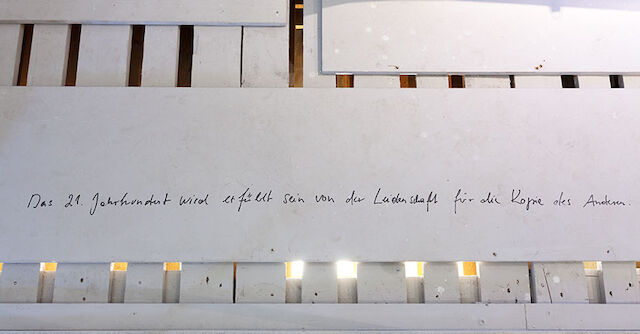 Das 21. Jahrhundert wird erfüllt sein von der Leidenschaft für die Kopie des Anderen.